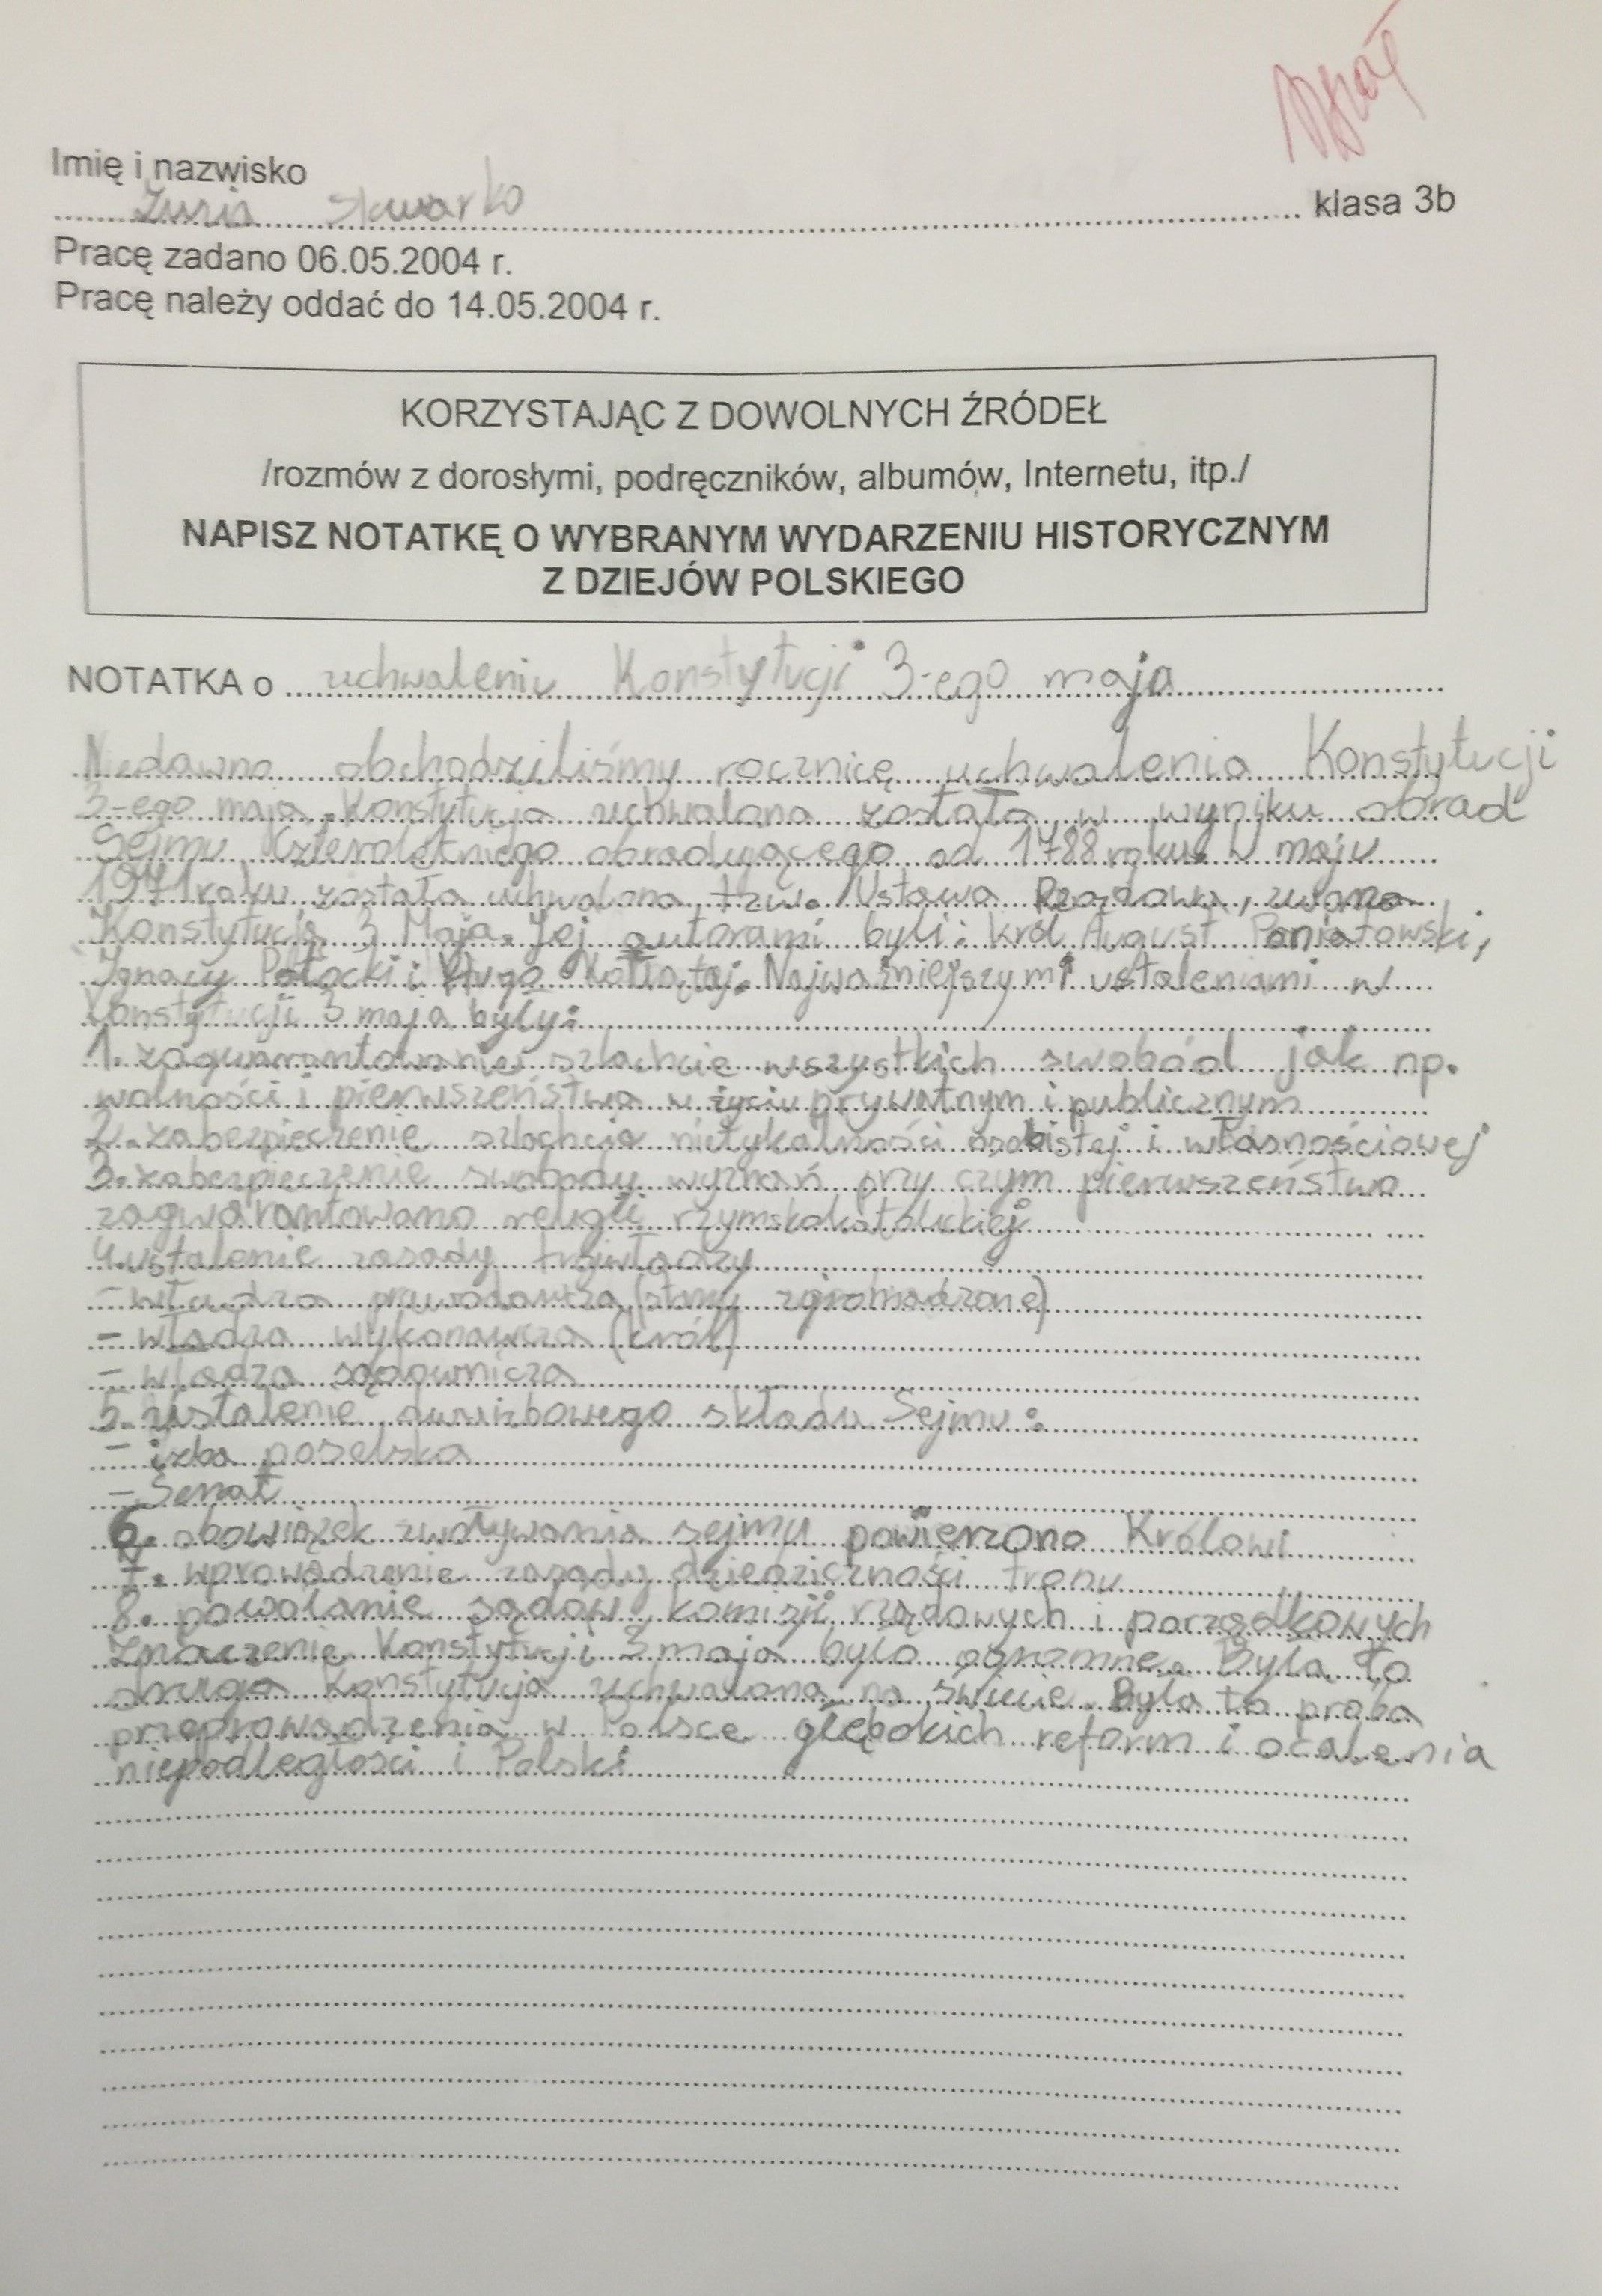 Imię i nazwisko
Zuzia Skwarko klasa 3b
Pracę zadano 06.05.2004 r.
Pracę należy oddać do 14.05.2004 r.
KORZYSTAJĄC Z DOWOLNYCH ŹRÓDEŁ
/rozmów z dorosłymi, podręczników, albumów, Internetu, itp./
NAPISZ NOTATKĘ O WYBRANYM WYDARZENIU HISTORYCZNYM
Z DZIEJÓW POLSKIEGO
NOTATKA o uchwaleniu Konstytucji 3-ego maja
Niedawno obchodziliśmy rocznicę uchwalenia Konstytucji
3-ego maja. Konstytucja uchwalona została w wyniku obrad
Sejmu Czteroletniego obradującego od 1788 roku. W maju
1971 roku została uchwalona tzw. Ustawa Rządowa, zwana
Konstytucją 3 Maja. Jej autorami byli: król August Poniatowski,
Ignacy Potocki i Hugo Kołłątaj. Najważniejszymi ustaleniami w
Konstytucji 3 maja były:
1. zagwarantowanie szlachcie wszystkich swobód jak np.
wolności i pierwszeństwa w życiu prywatnym i publicznym
2. zabezpieczenie szlachcie nietykalności osobistej i własnościowej
3. zabezpieczenie swobody wyznań przy czym pierwszeństwo
zagwarantowano religii rzymskokatolickiej
4. ustalenie zasady trójwładzy
- władza prawodawcza (stany zgromadzone)
- władza wykonawcza (król)
- władza sądownicza
5. ustalenie dwuizbowego składu Sejmu:
- izba poselska
- Senat
6. obowiązek zwoływania sejmu powierzono Królowi
7. wprowadzenie zasady dziedziczności tronu
8. powołanie sądów komisji rządowych i porządkowych
Znaczenie Konstytucji 3 maja było ogromne. Była to
druga Konstytucja uchwalona na świecie. Była to próba
przeprowadzenia w Polsce głębokich reform i ocalenia
niepodległości i Polski